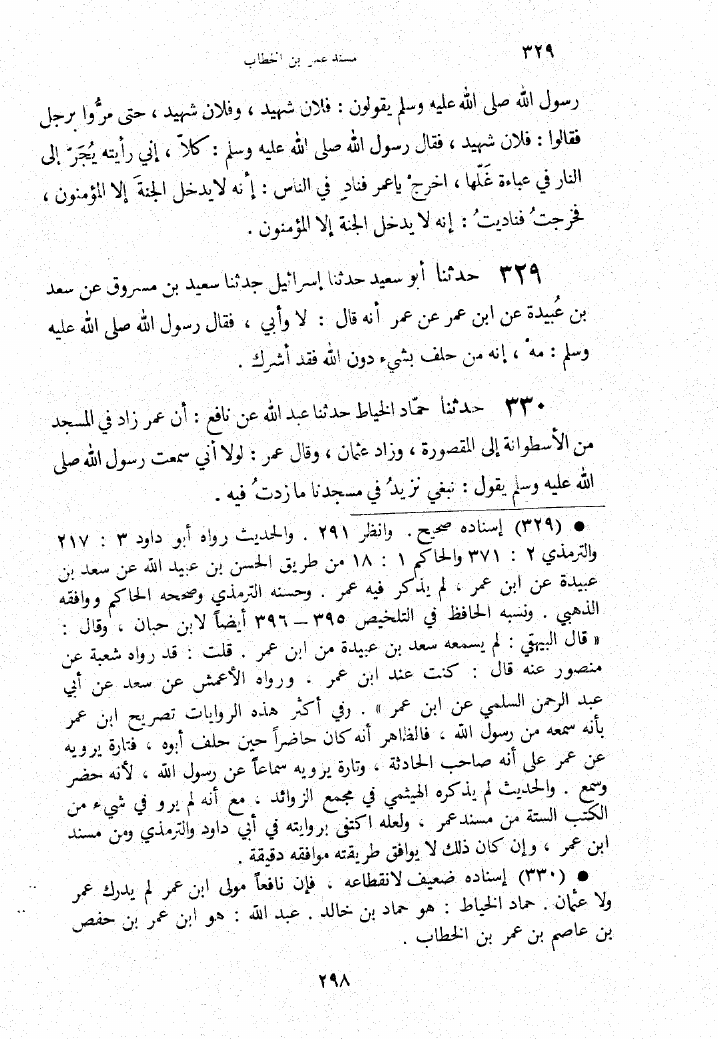 ٣٢٩
مسند عمر بن الخطاب
رسول الله صلى الله عليه وسلم يقولون : فلان شهيد ، وفلان شهيد ، حتى مرُّوا برجل
فقالوا : فلان شهيد ، فقال رسول الله صلى الله عليه وسلم : كلاّ ، إني رأيته يُجَرّ إلى
النار في عباءة غَلّها ، اخرجْ ياعمر فنادِ في الناس : أنه لايدخل الجنةَ إلا المؤمنون ،
فخرجتُ فناديتُ : إنه لا يدخل الجنة إلا المؤمنون .
٣٢٩ حدثنا أبو سعيد حدثنا إسرائيل حدثنا سعيد بن مسروق عن سعد
بن عُبيدة عن ابن عمر عن عمر أنه قال : لا وأبي ، فقال رسول الله صلى الله عليه
وسلم : مهْ ، إنه من حلف بشيء دون الله فقد أشرك .
٣٣٠ حدثنا حمّاد الخياط حدثنا عبد الله عن نافع : أن عمر زاد في المسجد
من الأسطوانة إلى المقصورة ، وزاد عثمان ، وقال عمر : لولا أني سمعت رسول الله صلى
الله عليه وسلم يقول : نبغي نزيدُ في مسجدنا ما زدتُ فيه .
● (٣٢٩) إسناده صحيح . وانظر ٢٩١ . والحديث رواه أبو داود ٣ : ٢١٧
والترمذي ٢ : ٣٧١ والحاكم ١ : ١٨ من طريق الحسن بن عبيد الله عن سعد بن
عبيدة عن ابن عمر ، لم يذكر فيه عمر . وحسنه الترمذي وصححه الحاكم ووافقه
الذهبي . ونسبه الحافظ في التلخيص ٣٩٥ – ٣٩٦ أيضاً لابن حبان ، وقال :
« قال البيهقي : لم يسمعه سعد بن عبيدة من ابن عمر . قلت : قد رواه شعبة عن
منصور عنه قال : كنت عند ابن عمر . ورواه الأعمش عن سعد عن أبي
عبد الرحمن السلمي عن ابن عمر » . وفي أكثر هذه الروايات تصريح ابن عمر
بأنه سمعه من رسول الله ، فالظاهر أنه كان حاضراً حين حلف أبوه ، فتارة يرويه
عن عمر على أنه صاحب الحادثة ، وتارة يرويه سماعاً عن رسول الله ، لأنه حضر
وسمع . والحديث لم يذكره الهيثمي في مجمع الزوائد ، مع أنه لم يرو في شيء من
الكتب الستة من مسندعمر ، ولعله اكتفى بروايته في أبي داود والترمذي ومن مسند
ابن عمر ، وإن كان ذلك لا يوافق طريقته موافقه دقيقة .
● (٣٣٠) إسناده ضعيف لانقطاعه ، فإن نافعاً مولى ابن عمر لم يدرك عمر
ولا عثمان . حماد الخياط : هو حماد بن خالد . عبد الله : هو ابن عمر بن حفص
بن عاصم بن عمر بن الخطاب .
٢٩٨